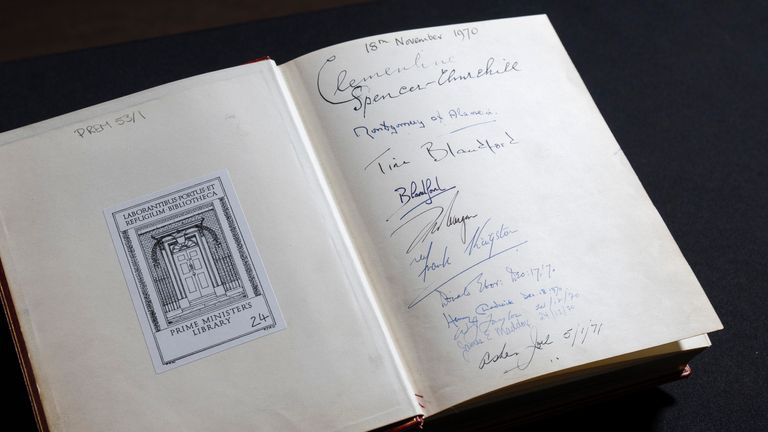 PREM 53/1
LABORANTIBUS PORTUS ET
REFUGIUM BIBLIOTHECA
PRIME MINISTER'S
LIBRARY
24
18th November 1970
Clementine
Spencer-Churchill
Montgomery of Alamein.
Tina Blandford
Blandford
Donald Ebor: Dec: 17/70.
Henry Chadwick Dec. 18 1970
James E Maddox 24/12/70
5/1/71